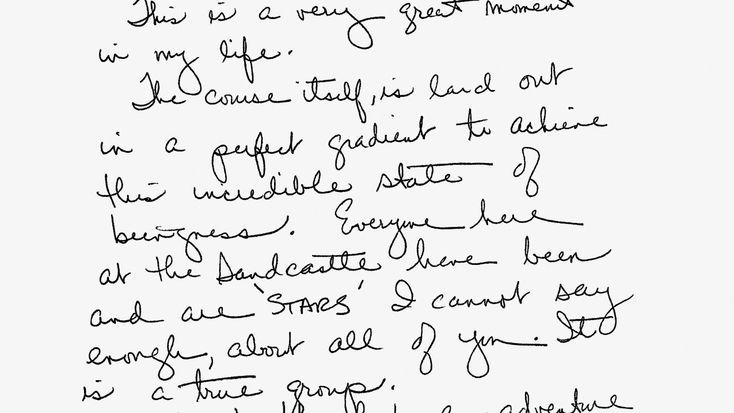 This is a very great moment
in my life.
The course itself, is laid out
in a perfect gradient to achieve
this incredible state of
beingness. Everyone here
at the Sandcastle have been
and are 'STARS' I cannot say
enough, about all of you. It
is a true group.
adventure